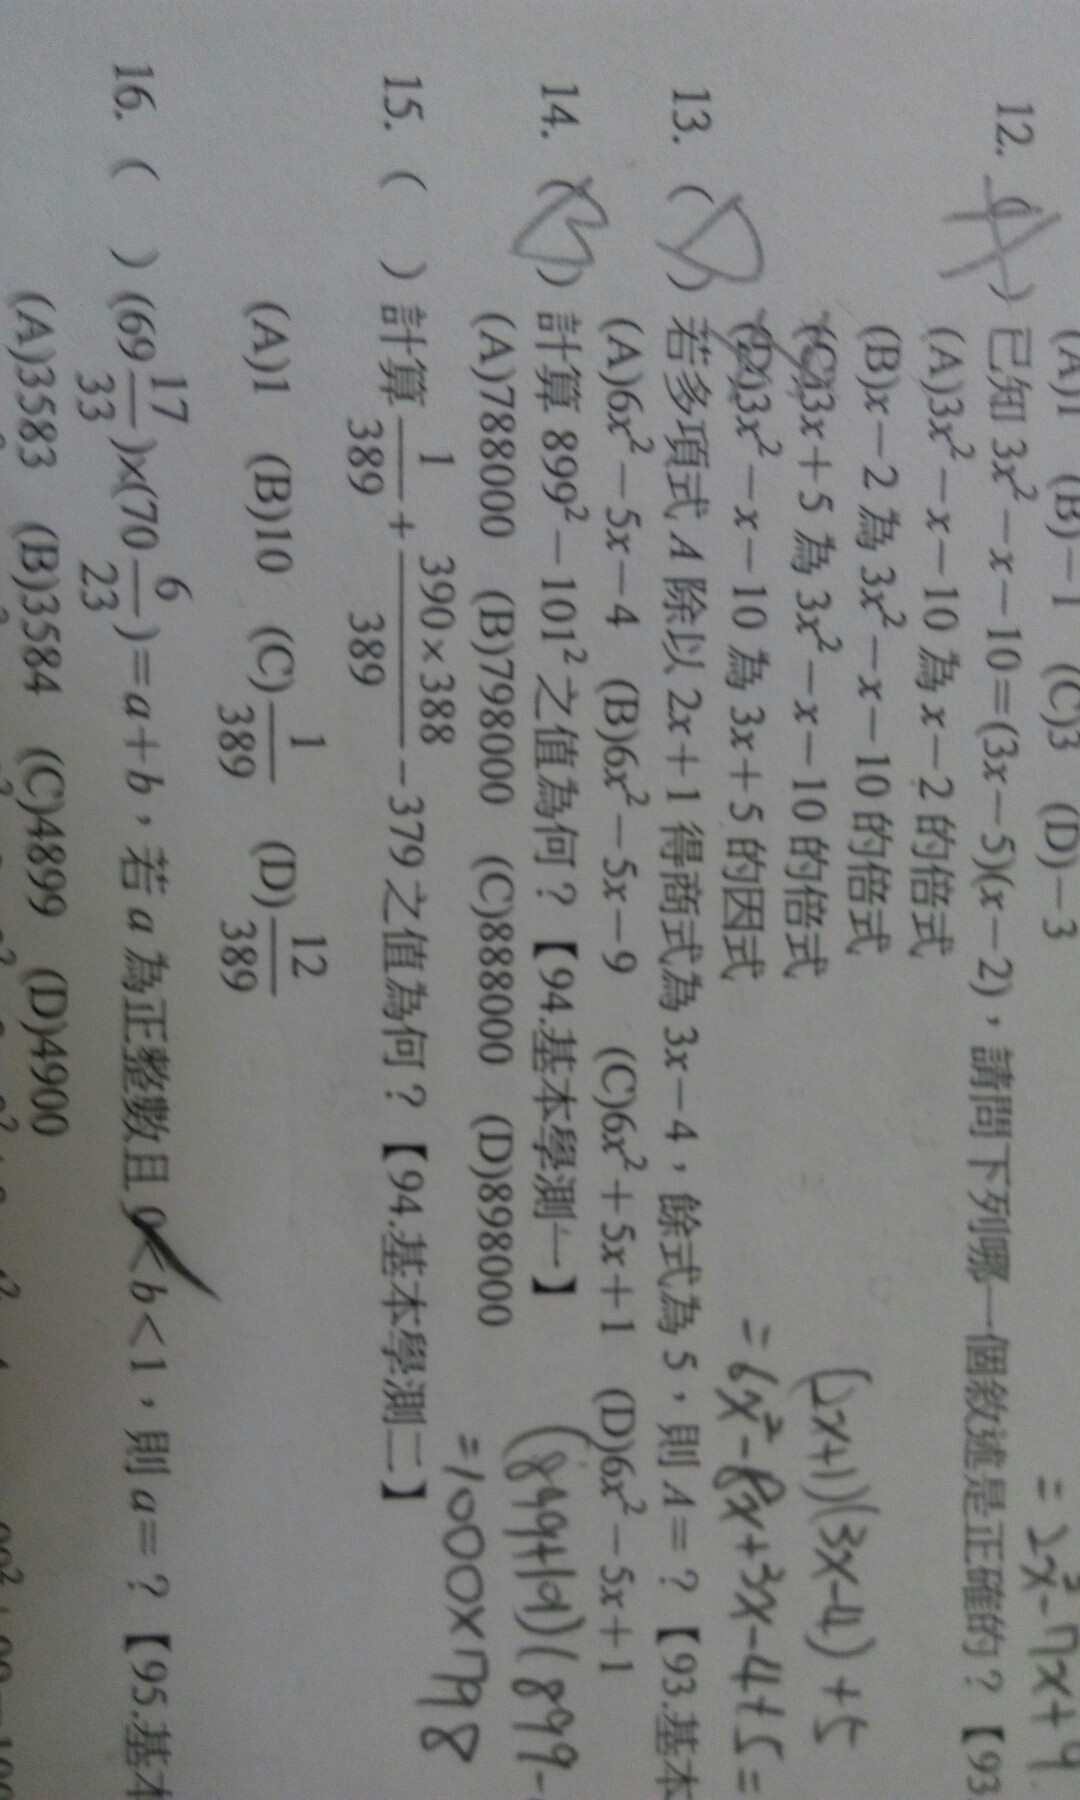 (A)1 (B)−1 (C)3 (D)−3
= 2x²−7x+9
12. (A) 已知 3x²−x−10=(3x−5)(x−2)，請問下列哪一個敘述是正確的？【93
(A)3x²−x−10 為 x−2 的倍式
(B)x−2 為 3x²−x−10 的倍式
(C)3x+5 為 3x²−x−10 的倍式
(D)3x²−x−10 為 3x+5 的因式
(2x+1)(3x−4)+5
= 6x²−8x+3x−4+5=
13. (D) 若多項式 A 除以 2x+1 得商式為 3x−4，餘式為 5，則 A=？【93.基本
(A)6x²−5x−4 (B)6x²−5x−9 (C)6x²+5x+1 (D)6x²−5x+1
14. (B) 計算 899²−101² 之值為何？【94.基本學測一】
(899+101)(899−
(A)788000 (B)798000 (C)888000 (D)898000
=1000×798
15. ( ) 計算 1/389 + 390×388/389 − 379 之值為何？【94.基本學測二】
(A)1 (B)10 (C)1/389 (D)12/389
16. ( ) (69 17/33)×(70 6/23)=a+b，若 a 為正整數且 0<b<1，則 a=？【95.基本
(A)3583 (B)3584 (C)4899 (D)4900